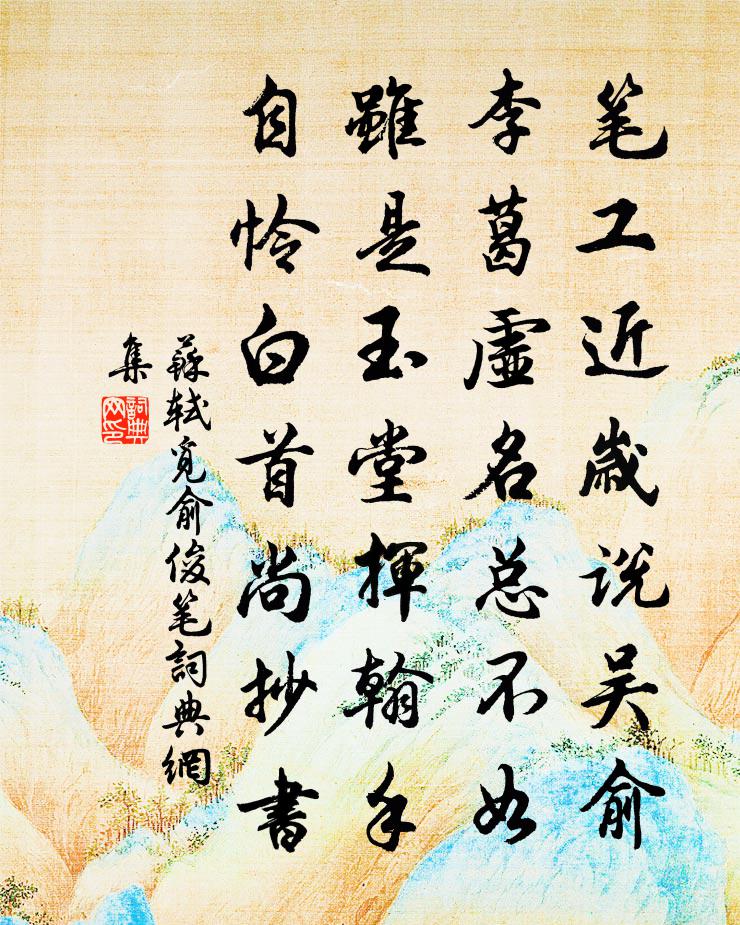 笔工近歲说吴俞
李葛虛名总不如
雖是玉堂揮翰手
自怜白首尚抄書
蘇軾覓俞俊笔詞典網
集
詞典
网印